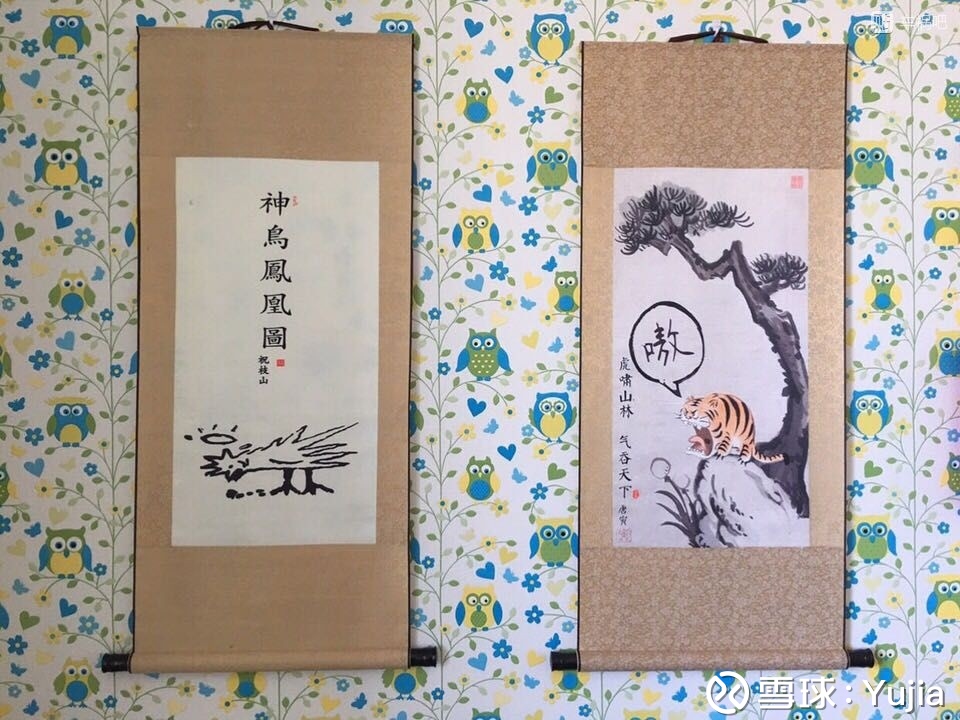 神鳥鳳凰圖
祝枝山
嗷
虎啸山林 气吞天下
唐寅
雪球:Yujia